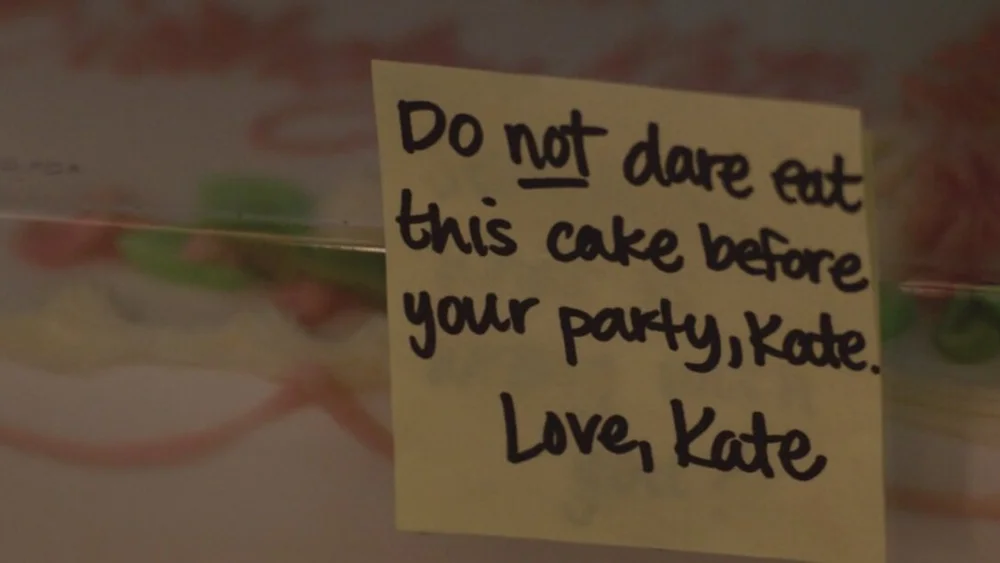 Do not dare eat
this cake before
your party, Kate.
Love, Kate